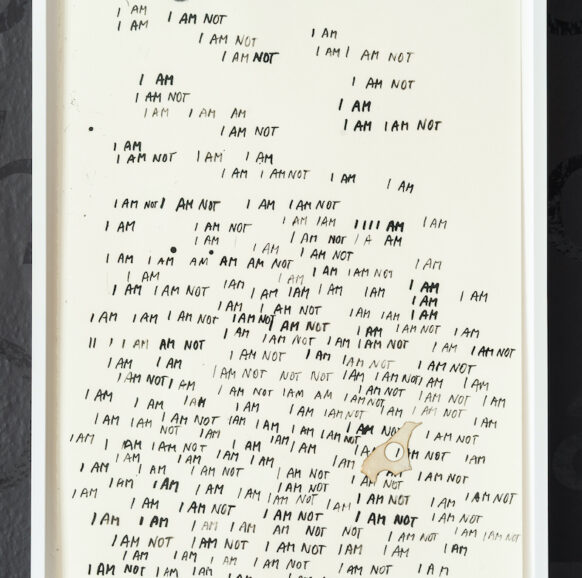 I AM
I AM NOT
I AM
I AM NOT I AM
I AM NOT I AM I AM NOT
I AM I AM NOT
I AM NOT I AM
I AM I AM AM
I AM NOT I AM I AM NOT
I AM
I AM NOT I AM I AM
I AM I AM NOT I AM I AM
I AM NOT I AM NOT I AM I AM NOT
I AM I AM NOT I AM I AM I I I I AM I AM
I AM I AM NOT I A AM
I AM I AM NOT
I AM I AM AM AM AM NOT I AM I AM NOT I AM
I AM I AM I AM I AM
I AM I AM NOT I AM I AM I AM I AM I AM I AM
I AM I AM NOT I AM I AM I AM
I AM I AM I AM NOT I AM NOT I AM NOT I AM I AM NOT I AM
I AM I AM NOT I AM NOT I AM NOT
I I I AM AM NOT I AM NOT I AM I AM NOT I AM I AM NOT
I AM I AM I AM NOT NOT NOT I AM I AM NOT I AM I AM
I AM NOT I AM I AM NOT I AM AM I AM NOT I AM NOT I AM
I AM I AM I AM I AM I AM NOT I AM I AM NOT
I AM I AM I AM NOT I AM I AM NOT I AM I AM NOT I AM NOT
I AM I AM I AM NOT I AM I AM I AM I AM NOT I AM
I AM I AM I AM I AM I AM
I AM I AM I AM NOT I AM NOT I AM NOT
I AM I AM I AM I AM I AM NOT I AM NOT I AM I AM NOT
I AM I AM NOT I AM NOT I AM NOT I AM NOT
I AM I AM I AM I AM AM NOT NOT I AM I AM NOT
I AM NOT I AM NOT I AM NOT I AM I AM
I AM I AM I AM I AM NOT I AM NOT I AM
I AM NOT I AM I AM I AM I AM I AM NOT